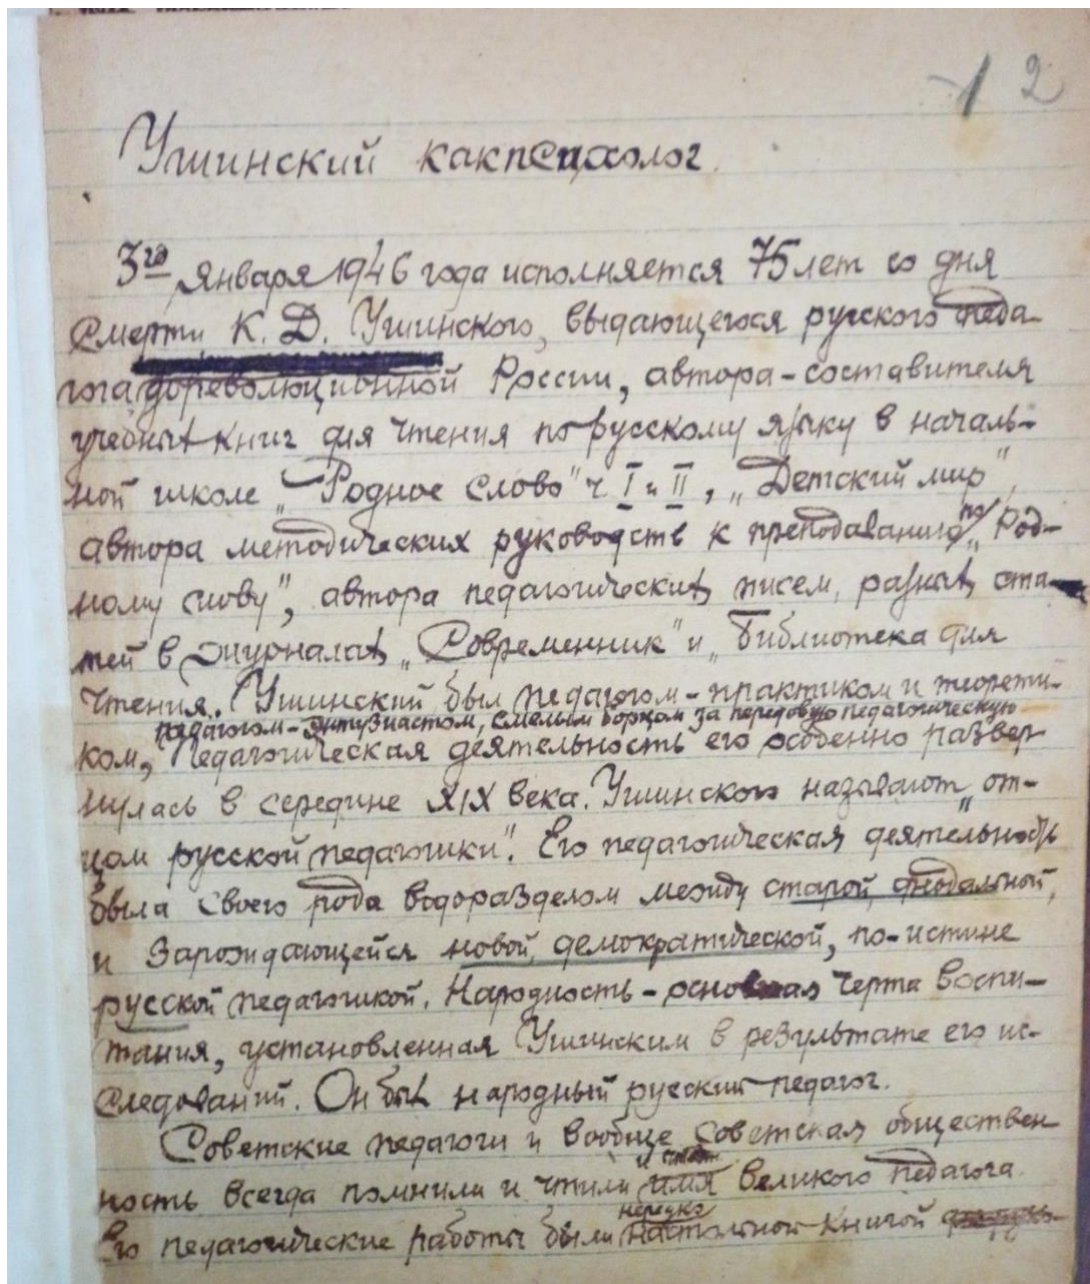 12
Ушинский как психолог.
3го Января 1946 года исполняется 75 лет со дня
смерти К. Д. Ушинского, выдающегося русского педа-
гога дореволюционной России, автора-составителя
учебных книг для чтения по русскому языку в началь-
ной школе „Родное Слово" ч I и II, „Детский мир",
автора методических руководств к преподаванию по „Род-
ному слову", автора педагогических писем, разных ста-
тей в журналах „Современник" и „Библиотека для
Чтения. Ушинский был педагогом-практиком и теорети-
педагогом-энтузиастом, смелым борцом за передовую педагогическую
ком, Педагогическая деятельность его особенно развер-
нулась в середине XIX века. Ушинского называют „от-
цом русской педагогики". Его педагогическая деятельность
была своего рода водоразделом между старой, феодальной,
и Зарождающейся новой, демократической, по-истине
русской педагогикой. Народность - основная черта воспи-
тания, установленная Ушинским в результате его ис-
следований. Он был народный русский педагог.
Советские педагоги и вообще Советская обществен-
ность всегда помнили и чтили имя великого педагога.
нередко
Его педагогические работы были настольной книгой